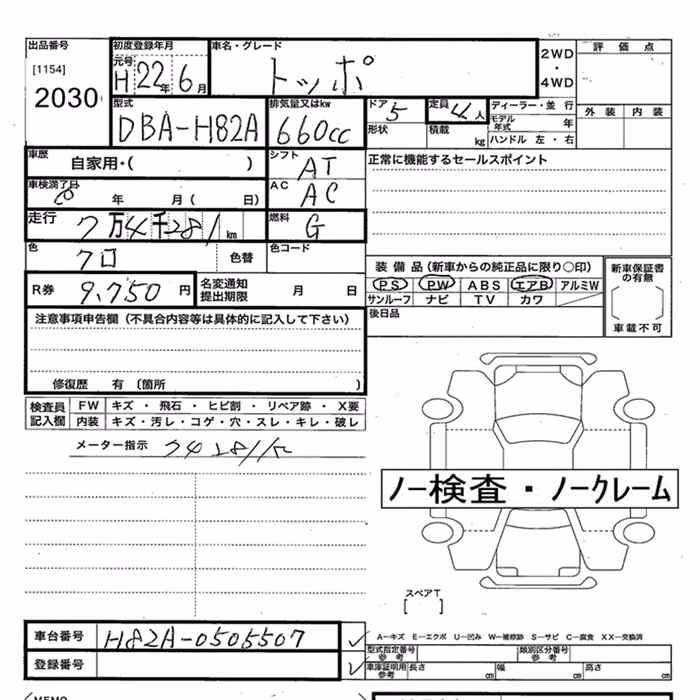 出品番号 初度登録年月 車名・グレード 2WD・4WD 評価点
[1154] 元号 H 22年 6月 トッポ
2030 外装 内装
型式 排気量又はkw ドア 5 定員 4人 ディーラー・並行
DBA-H82A 660cc 形状 積載 kg モデル年式 年
ハンドル 左・右
車歴 自家用・( ) シフト AT 正常に機能するセールスポイント
車検満了日 年 月( 日) AC AC
走行 7万4千281km 燃料 G
色 クロ 色替 色コード
装備品(新車からの純正品に限り○印) 新車保証書の有無
R券 9,750円 名変通知提出期限 月 日 PS PW ABS エアB アルミW
サンルーフ ナビ TV カワ
車載不可
注意事項申告欄(不具合内容等は具体的に記入して下さい) 後日品
修復歴 有 〔箇所 〕
検査員記入欄 FW キズ・飛石・ヒビ割・リペア跡・X要
内装 キズ・汚レ・コゲ・穴・スレ・キレ・破レ
メーター指示
ノー検査・ノークレーム
スペアT
[ ]
車台番号 H82A-0505507 A−キズ E−エクボ U−凹み W−補修跡 S−サビ C−腐食 XX−交換済
型式指定番号参考 類別区分番号参考
登録番号 車庫証明用参考 長さ cm 幅 cm 高さ cm
MEMO